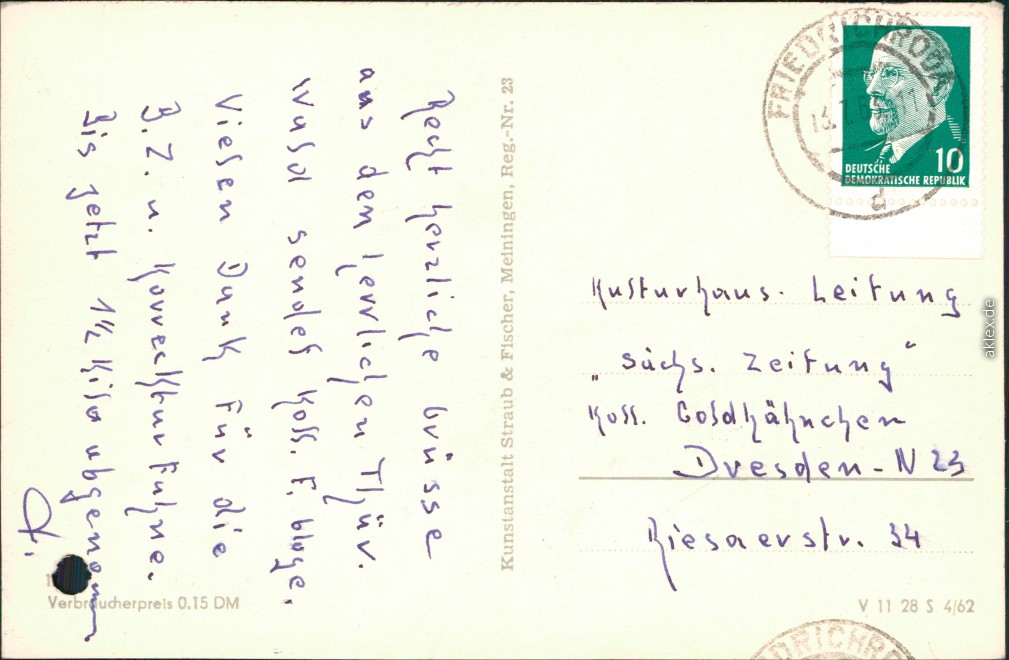 Recht herzliche Grüsse
aus den herrlichen Thür.
Wald sendet Koll. F.
Vielen Dank für die
B.Z. u. Korrekturfahne.
Bis jetzt 1½ Kilo abgenomm.
Kunstanstalt Straub & Fischer, Meiningen, Reg.-Nr. 23
FRIEDRICHRODA
d
10
DEUTSCHE
DEMOKRATISCHE REPUBLIK
Kulturhaus-Leitung
„Sächs. Zeitung"
Koll. Goldhähnchen
Dresden-N 23
Riesaerstr. 34
Verbraucherpreis 0.15 DM
V 11 28 S 4/62
FRIEDRICHRO
aklex.de